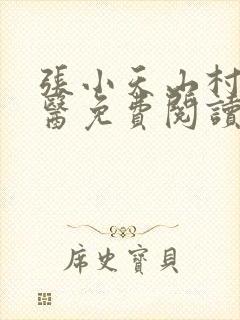 張小天山村
醫免費閱讀
席史寶貝